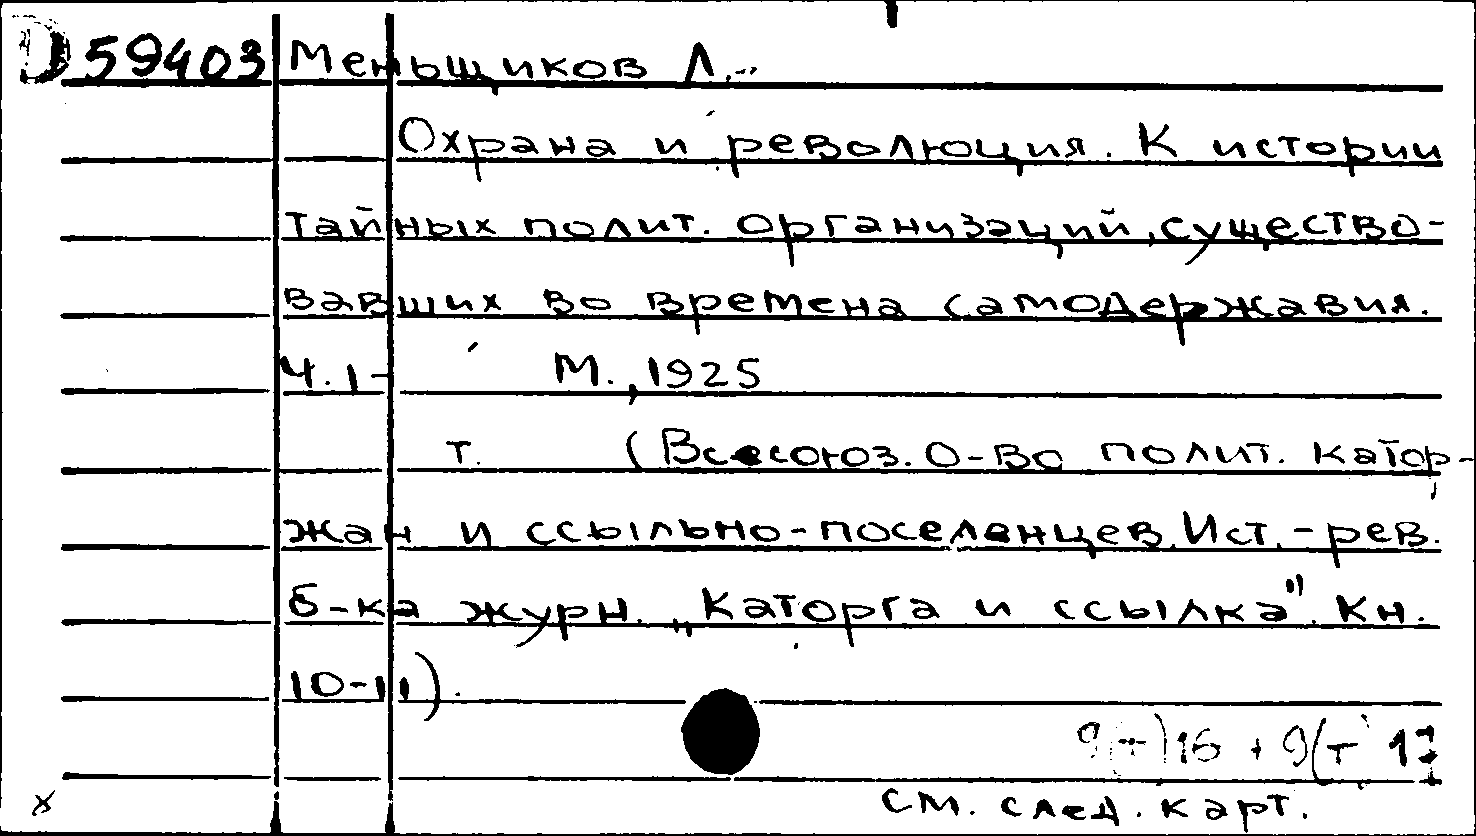 D 59403 Меньщиков Л.
Охрана и революция. К истории
тайных полит. организаций, существо-
вавших во времена самодержавия.
Ч. 1- М., 1925
т. (Всесоюз. О-во полит. катор-
жан и ссыльно-поселенцев. Ист.-рев.
б-ка журн. „Каторга и ссылка". Кн.
10-11).
9(т)16 + 9(т) 17
см. след. карт.